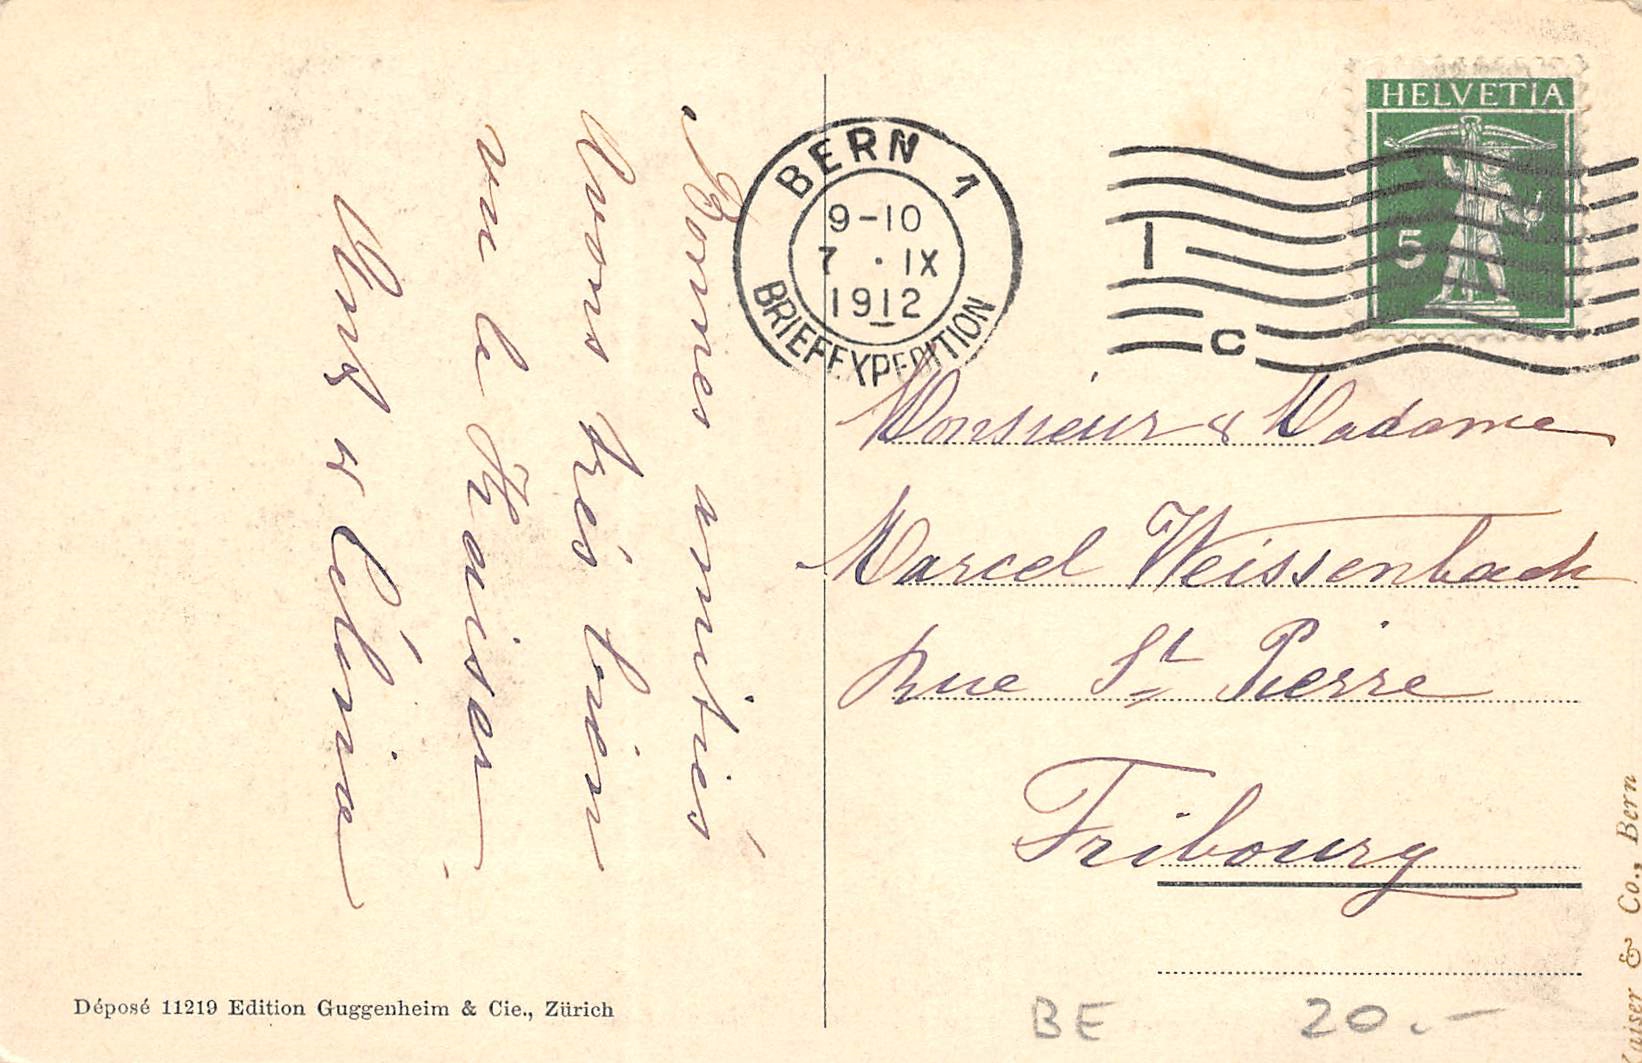 Bonnes amitiés
Avons très bien
vu le Kaiser.
et Célina
BERN 1
9-10
7 · IX
1912
BRIEFEXPEDITION
1
C
HELVETIA
5
Monsieur & Madame
Marcel Weissenbach
Rue St Pierre
Fribourg
Déposé 11219 Edition Guggenheim & Cie., Zürich
BE 20.-
Kaiser & Co., Bern